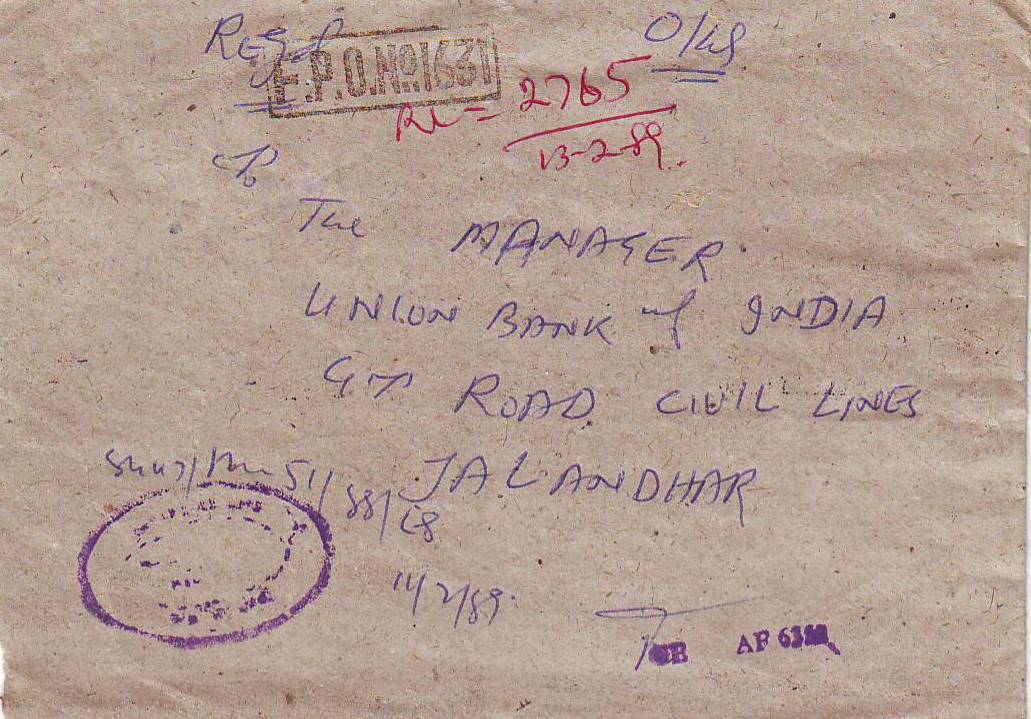 Regd
O/48
F.P.O.No.1631
RL = 2765
13-2-89.
To
The MANAGER
UNION BANK of INDIA
GT ROAD CIVIL LINES
JALANDHAR
51/88/68
11/2/89.
AF